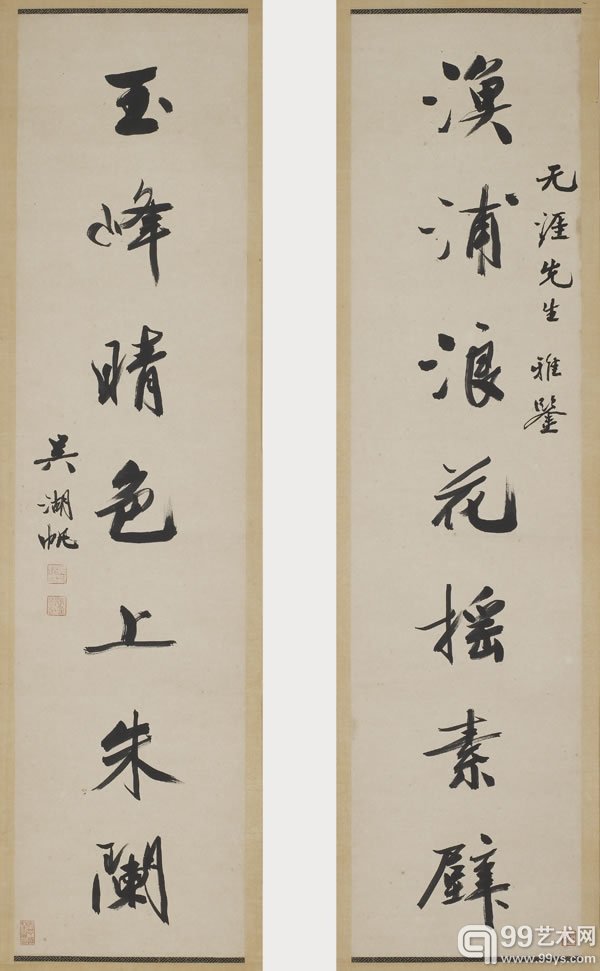 漁浦浪花摇素壁
无涯先生 雅鑒
玉峰晴色上朱闌
吴湖帆
99艺术网
www.99ys.com